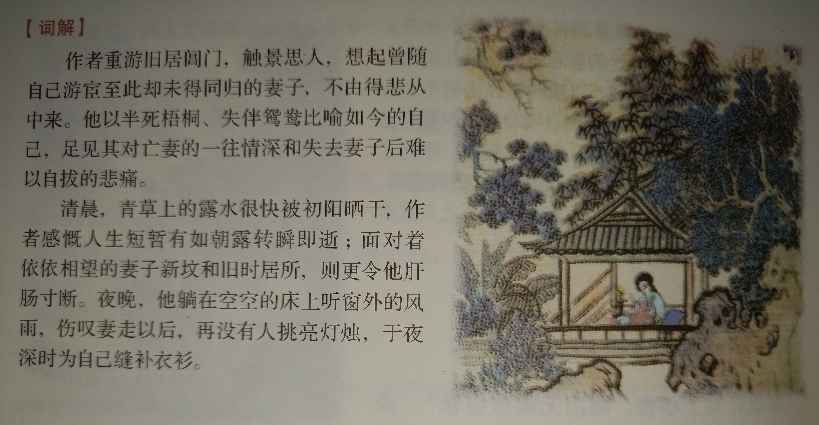 【词解】
作者重游旧居阊门，触景思人，想起曾随
自己游宦至此却未得同归的妻子，不由得悲从
中来。他以半死梧桐、失伴鸳鸯比喻如今的自
己，足见其对亡妻的一往情深和失去妻子后难
以自拔的悲痛。
清晨，青草上的露水很快被初阳晒干，作
者感慨人生短暂有如朝露转瞬即逝；面对着
依依相望的妻子新坟和旧时居所，则更令他肝
肠寸断。夜晚，他躺在空空的床上听窗外的风
雨，伤叹妻走以后，再没有人挑亮灯烛，于夜
深时为自己缝补衣衫。